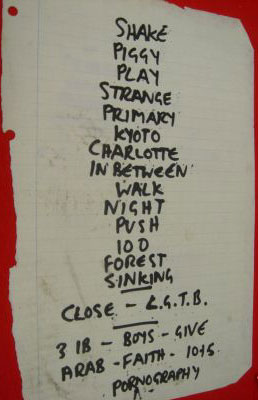 SHAKE
PIGGY
PLAY
STRANGE
PRIMARY
KYOTO
CHARLOTTE
IN BETWEEN
WALK
NIGHT
PUSH
100
FOREST
SINKING
CLOSE - L.G.T.B.
3 IB - BOYS - GIVE
ARAB - FAITH - 1015
PORNOGRAPHY